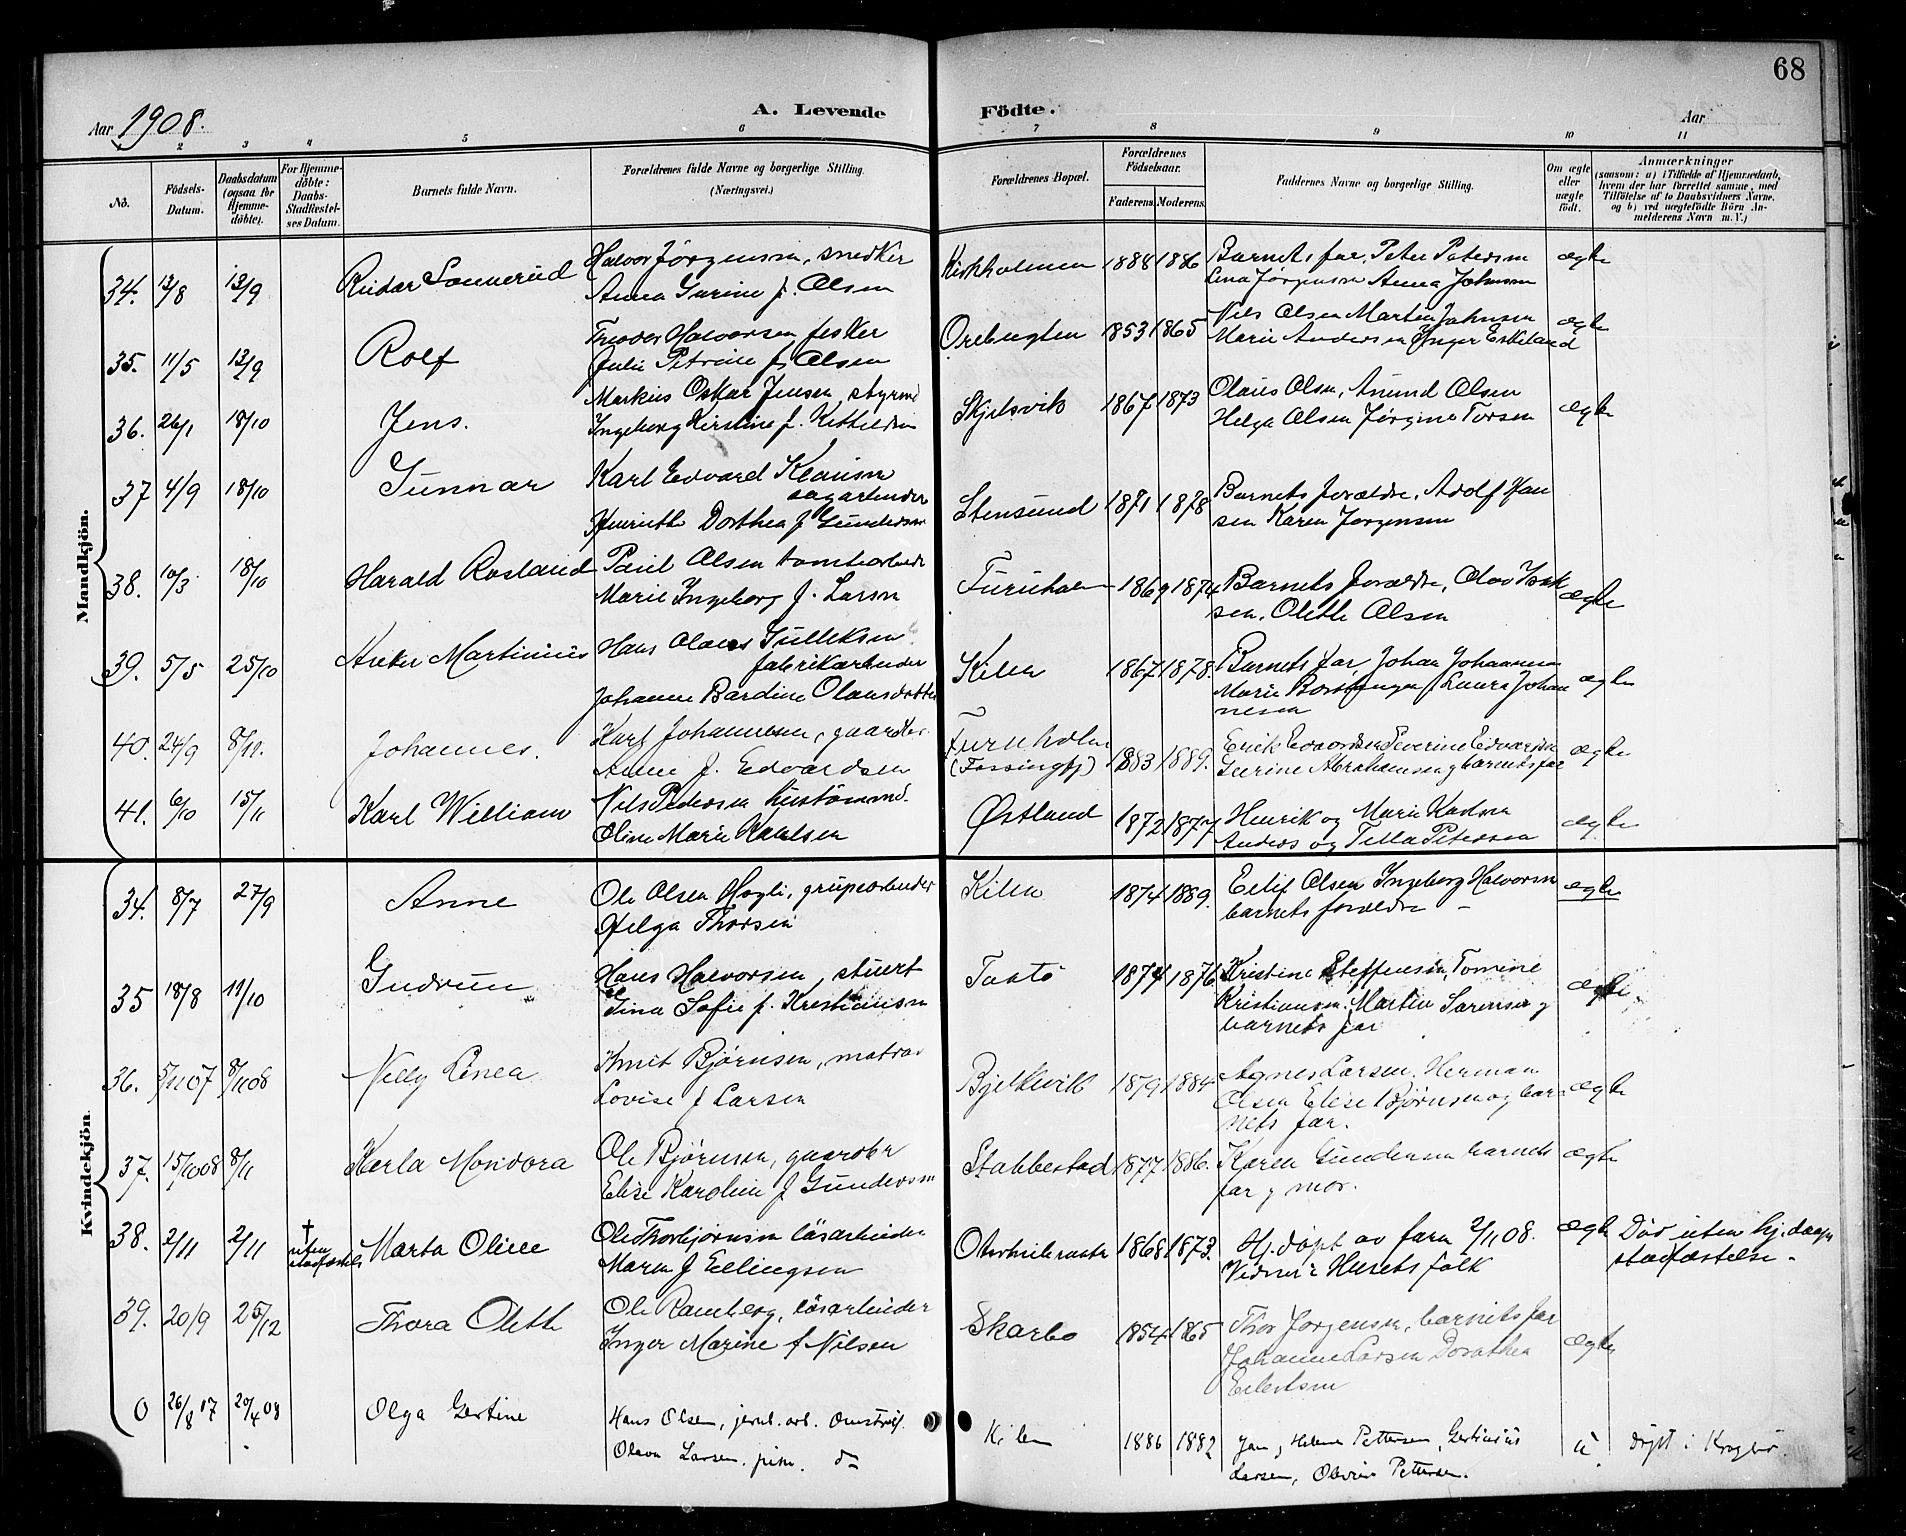 68
Aar 1908.
A. Levende Födte.
Aar
2 3 4 5 6 7 8 9 10 11
No.
Födsels-Datum.
Daabsdatum (ogsaa for Hjemme-döbte).
For Hjemme-döbte: Daabs-Stadfæstel-ses Datum.
Barnets fulde Navn.
Forældrenes fulde Navne og borgerlige Stilling.
(Næringsvei.)
Forældrenes Bopæl.
Forældrenes Födselsaar.
Faderens. Moderens.
Faddernes Navne og borgerlige Stilling.
Om ægte eller uægte födt.
Anmærkninger
(saasom: a) i Tilfælde af Hjemmedaab,
hvem der har forrettet samme, med
Tilföielse af to Daabsvidners Navne.
og b) ved uægtefödte Börn An-
melderens Navn m. V.)
Mandkjön.
34. 13/8 13/9 Reidar Sannerud
Halvor Jørgensen, snedker
Anna Gurine f. Olsen
Kirkholmen 1888 1886
Barnets far, Peter Petersen
Lina Jørgensen Anna Johnsen
ægte
35. 11/5 13/9 Rolf
Theodor Halvorsen fisker
Julie Petrine f. Olsen
Orebugten 1853 1865
Nils Olsen Martin Johnsen
Marie Andersen Inger Eskeland
ægte
36. 26/1 18/10 Jens.
Markus Oskar Jensen, styrmd
Ingeborg Kirstine f. Kittelsen
Skjelsvik 1867 1873
Olaus Olsen, Amund Olsen
Helga Olsen Jørgine Torsen
ægte
37 4/9 18/10 Gunnar
Karl Edvard Klausen
sagarbeider
Henriette Dorthea f Gundersen
Stensund 1871 1878
Barnets forældre, Adolf Han
sen Karen Jørgensen
38. 10/3 18/10 Harald Rosland
Paul Olsen tomtearbeider
Marie Ingeborg f. Larsen
Furuholm 1869 1874
Barnets forældre, Olav Isak
sen, Olette Olsen
ægte
39. 5/5 25/10 Anker Martinius
Hans Olaus Gulleksen
fabrikarbeider
Johanne Bardine Olausdatter
Kilen 1867 1878.
Barnets far Johan Johannesen
Marie Laura Johan
nesen
ægte
40. 24/9 8/11. Johannes.
Karl Johannesen, gaardbr.
Anne f. Edvardsen
Furuholm
(Fossingfj) 1883 1889.
Erik Edvardsen Severine Edvardsen
Gurine Abrahamsen og barnets far
ægte
41. 6/10 15/11 Karl William
Nils Pedersen hustømmd.
Oline Marie Karlsen
Østland 1872 1877
Henrik og Marie Karlsen
Anders og Tilla Petersen
ægte
Kvindekjön.
34. 8/7 27/9 Anne
Ole Olsen Hogli, grubearbeider
Helga Thorsen
Kilen 1874 1889.
Eilif Olsen Ingeborg Halvorsen
barnets forældre –
ægte
35 18/8 11/10 Gudrun
Hans Halvorsen, stuert
Gina Sofie f. Kristiansen
Taatø 1874 1876
Kristine Steffensen, Tomine
Kristiansen. Martin Sørensen og
barnets far
ægte
36. 5/11 07 8/11 08 Nelly Linea
Knut Bjørnsen, matros
Lovise f Larsen
Bjelkevik 1879 1884
Agnes Larsen, Herman
Olsen Elise Bjørnsen og bar
nets far.
ægte
37. 15/10 08 8/11 Kerla Mondora
Ole Bjørnsen, gaardbr
Elise Karoline f Gundersen
Stabbestad 1877 1886.
Karen Gundersen barnets
far og mor.
ægte
38. 2/11 2/11 † uten stadfæstelse Marta Oline
Ole Thorbjørnsen løsarbeider
Maren f Ellingsen
1868 1873.
Hj. døpt av faren 2/11 08.
Vidner: Husets folk
ægte
Død uten hj.daaps
stadfæstelse.
39. 20/9 25/12 Thora Oletta
Ole Ramberg, løsarbeider
Inger Marine f Nilsen
Skarbo 1854 1865
Thor Jørgensen, barnets far
Johanne Larsen Dorathea
Eilertsen
ægte
0 26/8 07 20/4 08 Olga Gertine
Hans Olsen, jernb.arb.
Olava Larsen, pike. do
Kilen 1886 1882
Jan og Helene Pettersen, Gertinius
Larsen, Olevine Pettersen.
u.
døpt i Kragerø.